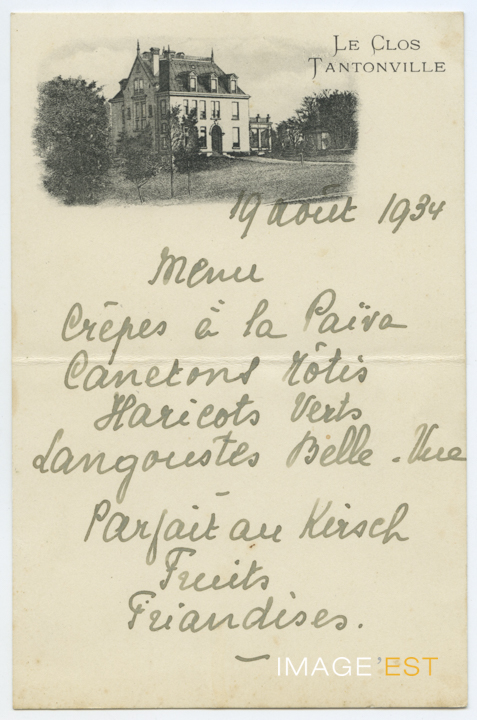 LE CLOS
TANTONVILLE
19 août 1934
Menu
Crêpes à la Païva
Canetons Rôtis
Haricots Verts
Langoustes Belle-Vue
Parfait au Kirsch
Fruits
Friandises.
IMAGE'EST